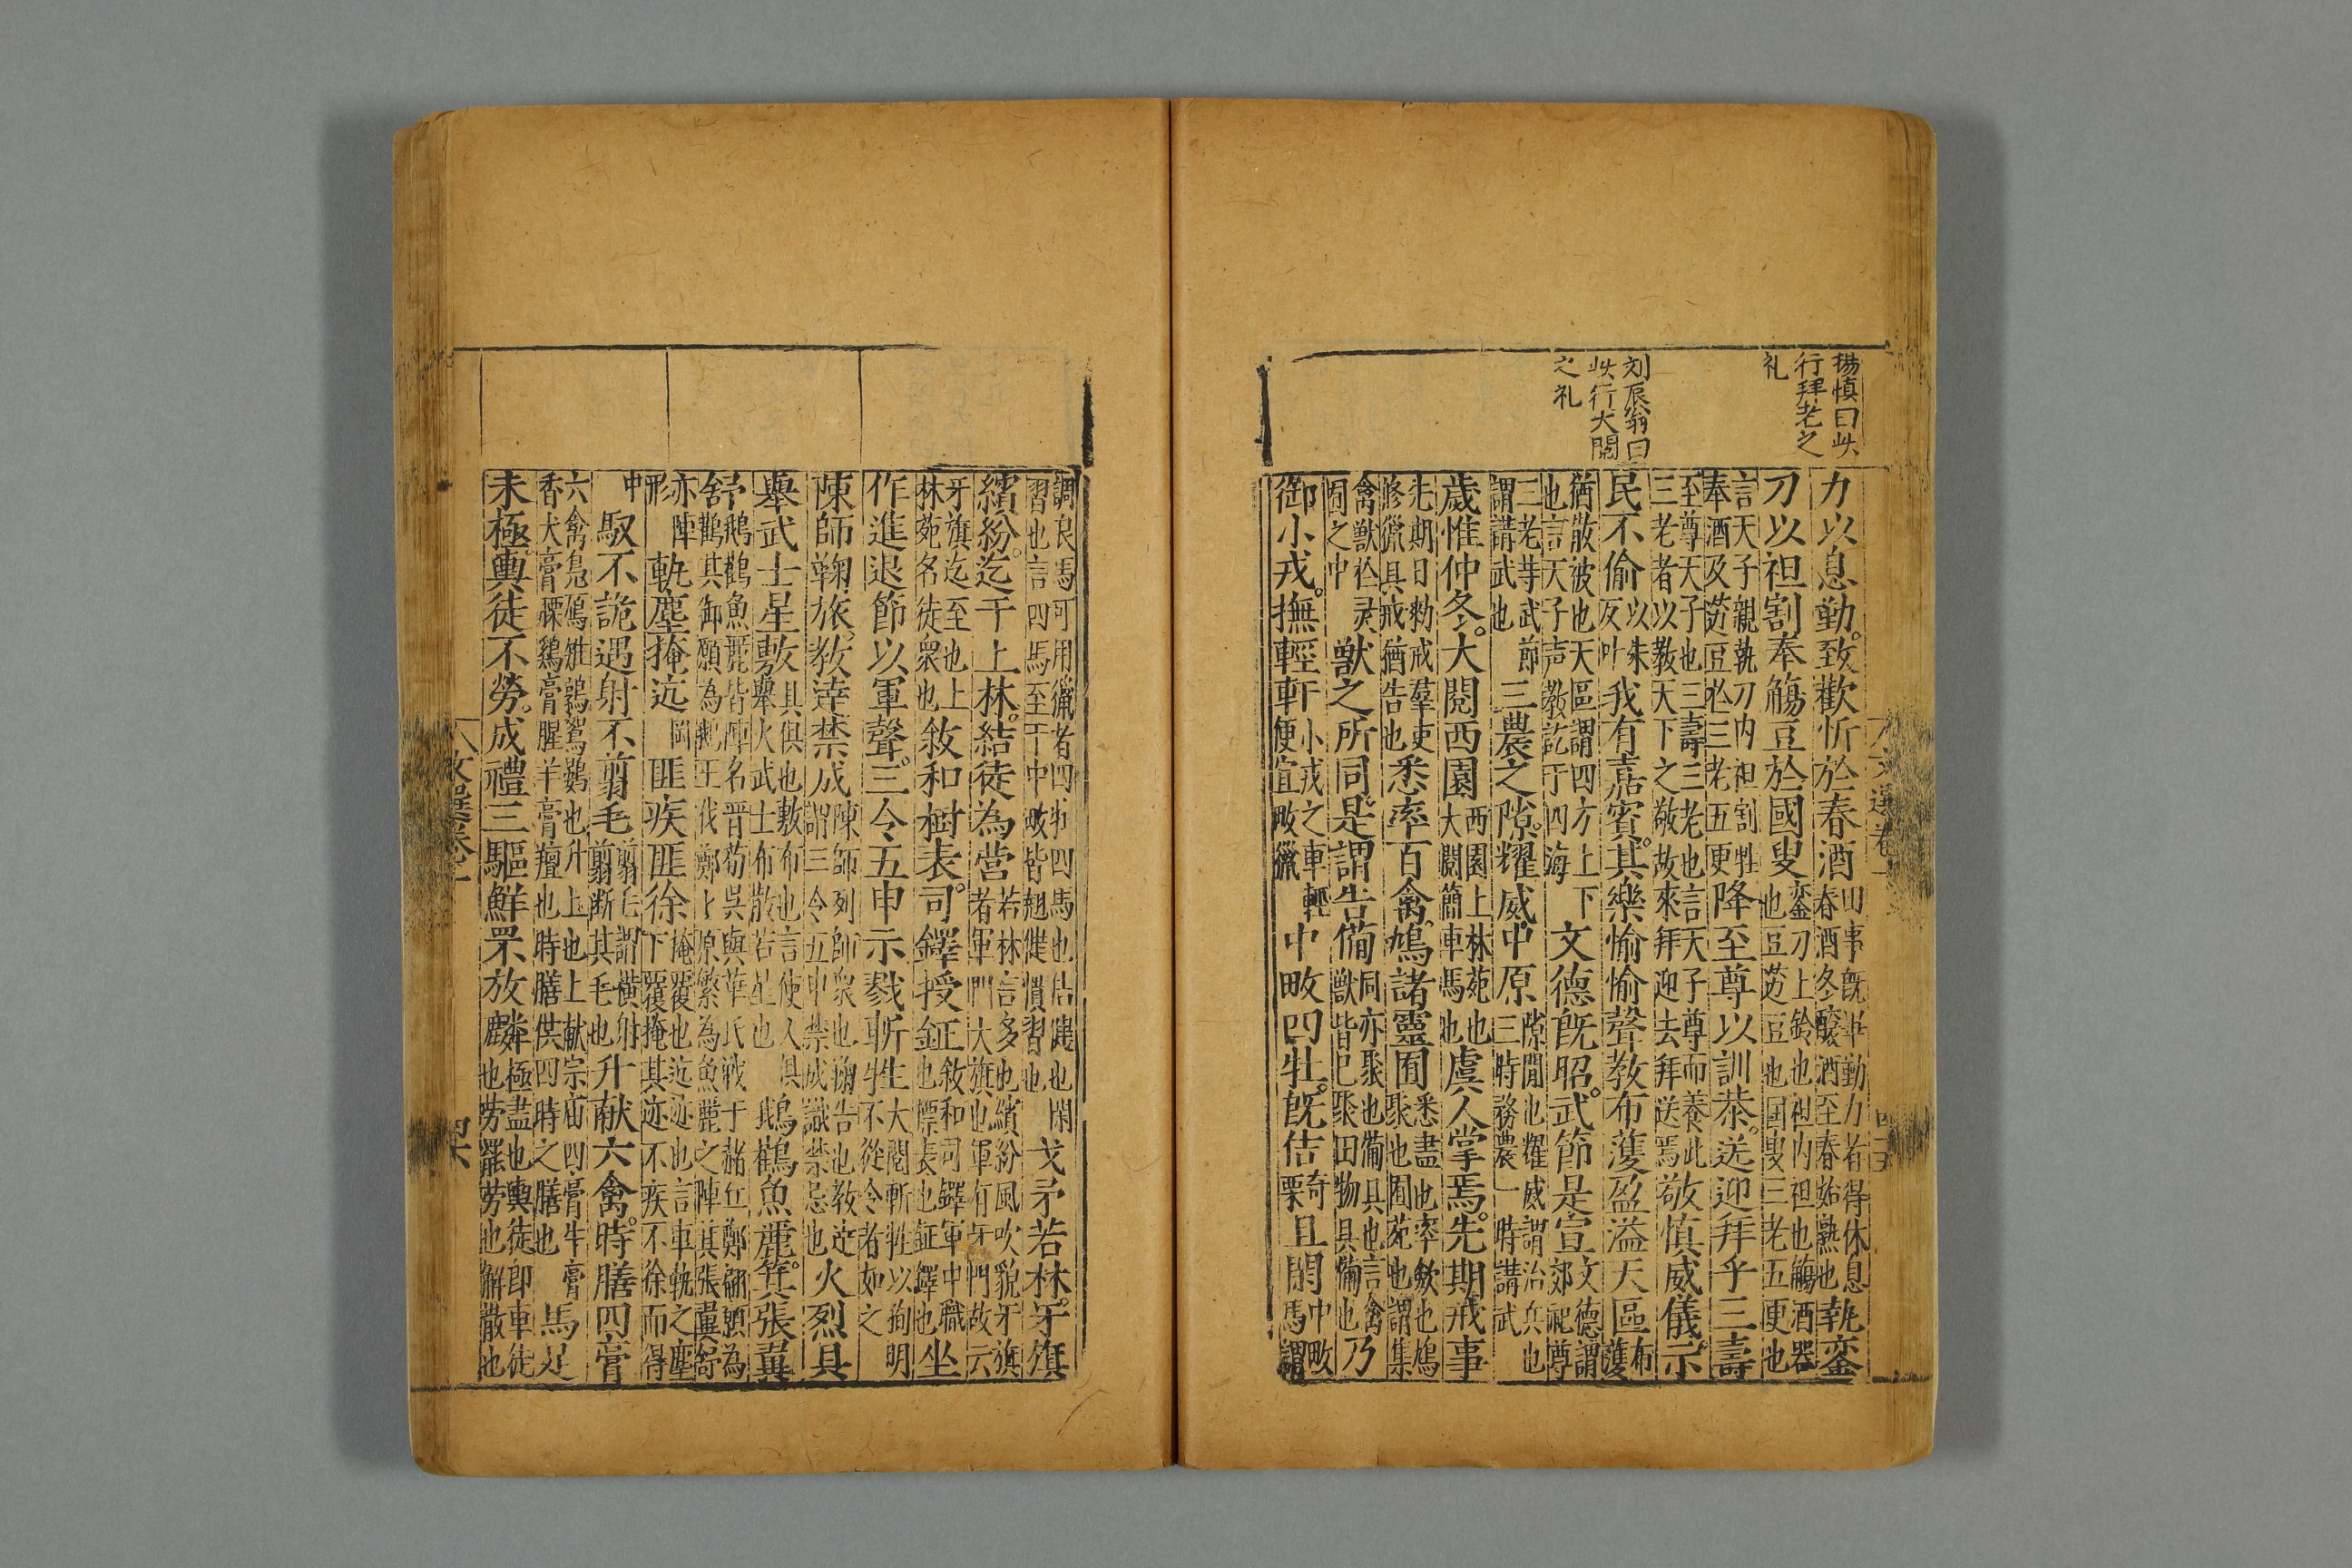 楊慎曰此
行拜老之
礼
刘辰翁曰
此行大閱
之礼
力以息勤。致歡忻於春酒田事既畢勤力者得休息春酒冬釀酒至春始熟也執鑾
刀以袒割奉觴豆於國叟鑾刀上鈴也袒内袒也觴酒器也豆荳豆也国叟三老五更也
言天子親執刀内袒割牲奉酒及荳豆必三老五更降至尊以訓恭。送迎拜乎三壽
至尊天子也三壽三老也言天子尊而養此三老者以教天下之敬故來拜迎去拜送焉敬慎威儀。示
民不偷以朱反叶我有嘉賓。其樂愉愉聲教布濩盈溢天區布濩
猶散被也天區謂四方上下也言天子声教訖于四海文德既昭。武節是宣文德謂郊祀尊
三老等武節謂講武也三農之隙。耀威中原隙閒也耀威謂治兵也三時務農一時講武
歲惟仲冬。大閱西園西園上林苑也大閱簡車馬也虞人掌焉。先期戒事
先期日勑戒羣吏修獵具戒猶告也悉率百禽。鳩諸靈囿悉盡也率斂也鳩聚也囿苑也謂集
禽獸於灵囿之中獸之所同。是謂告備同亦聚也備具也言禽獸皆已聚田物具備也乃
御小戎。撫輕軒小戎之車輕便宜畋獵中畋四牡。既佶奇栗且閑中畋馬謂
文選卷
四十五
調良馬可用獵者四牡四馬也佶健也閑習也言四馬至于中畋皆翹健慣習也戈矛若林。牙旗
繽紛。迄于上林。結徒為營若林言多也繽紛風吹貌牙旗者軍門大旗也軍有牙門故云
牙旗迄至也上林苑名徒衆也敘和樹表。司鐸授鉦敘和司鐸軍中職也標表也鉦鐸也坐
作進退節以軍聲。三令五申示戮斬牲大閱斬牲以狥明不從令者如之
陳師鞠旅。教達禁成陳師列師衆也鞠告也教达謂三令五申禁成識禁忌也火烈具
舉武士星敷具俱也敷布也言使人俱舉火武士布散若星也鵝鸛魚麗。箕張翼
舒鵝鸛魚麗皆陣名晋荀呉與華氏戦于赭丘鄭翩願為鸛其御願為鵝王伐鄭卜原繁為魚麗之陣其張翼舒
亦陣形軌塵掩迒岡匪疾匪徐掩覆也迒迹也言車軌之塵下覆掩其迹不疾不徐而得
中馭不詭遇射不翦毛翦毛謂横射翦断其毛也升献六禽。時膳四膏
六禽鳬鴈雉鶉鴐鷃也升上也上献宗庙四膏牛膏香犬膏臊鷄膏腥羊膏羶也時膳供四時之膳也馬足
未極。輿徒不勞。成禮三驅解罘放麟極盡也輿徒即車徒也劳罷劳也解散也
文選卷
四十六